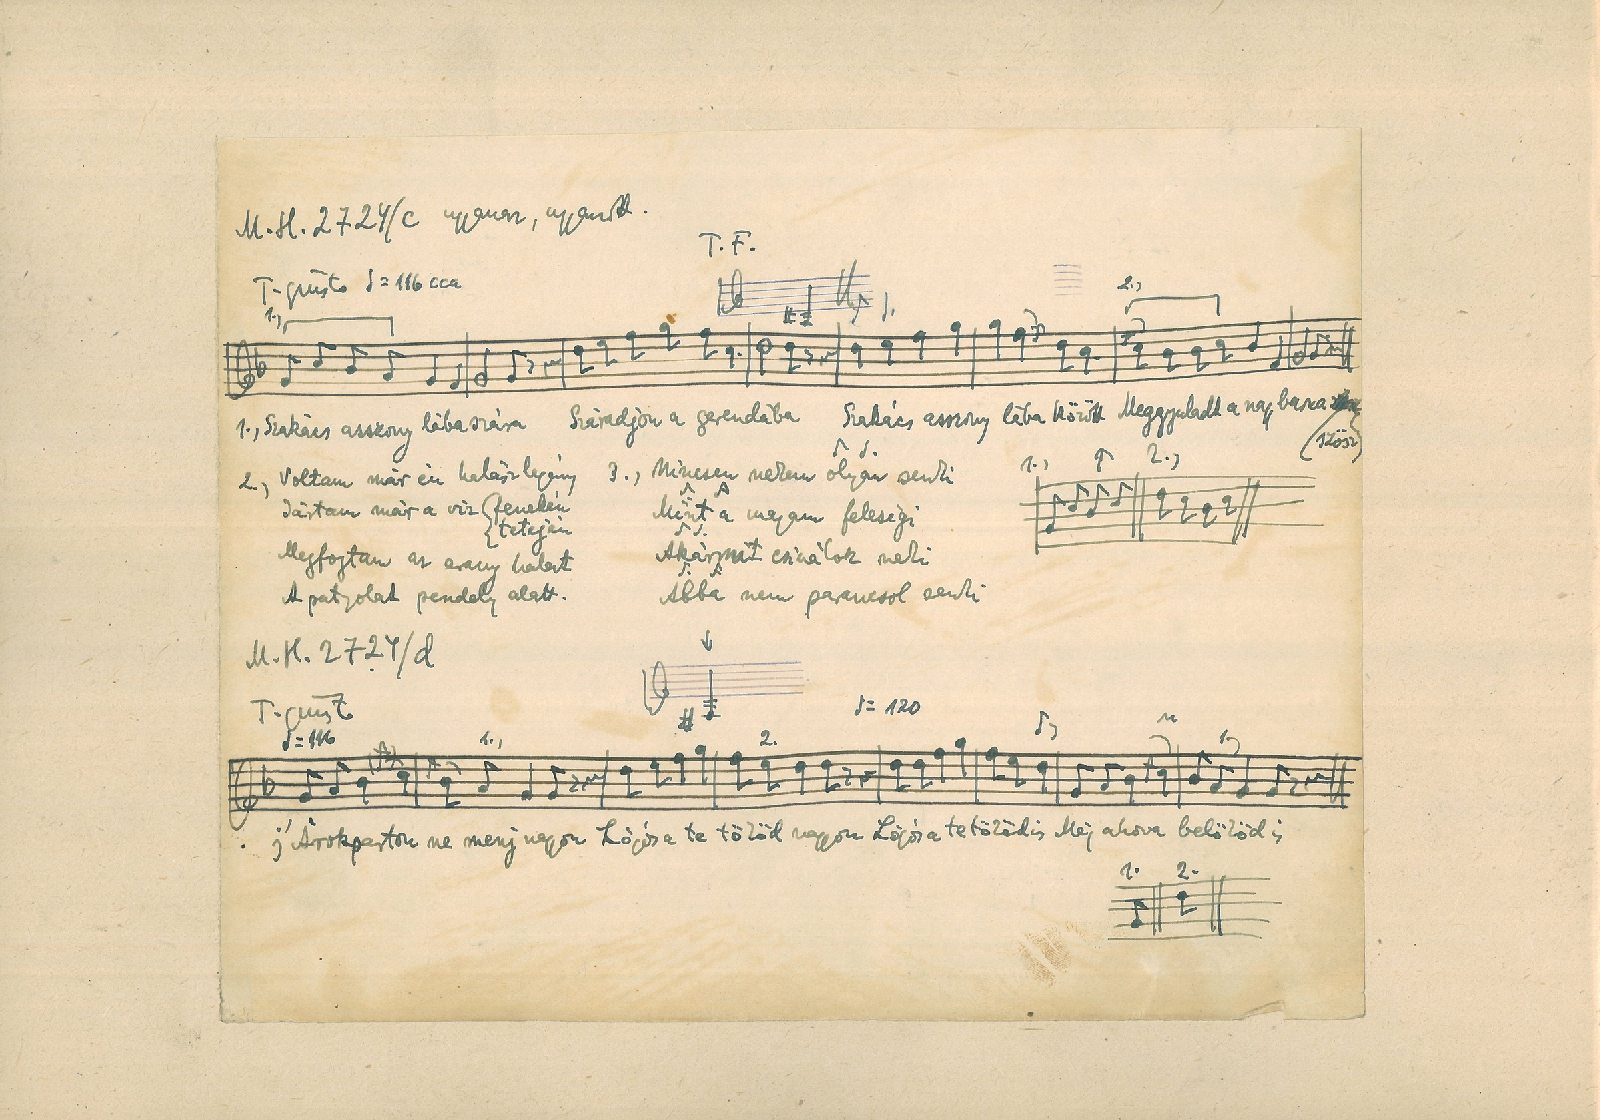 M.H. 2724/c ugyanaz, ugyanott.
T. F.
T. giusto ♪ = 116 cca
1., 2.,
1., Szakács asszony lábaszára Száradjon a gerendába Szakács asszony lába között Meggyuladt a nap barca
(között)
2., Voltam már én halászlegény
Jártam már a viz { fenekén
{ tetején
Megfogtam az arany halat
A patyolat pendely alatt.
3., Nincsen nekem olyan senki
Mint a magam feleségi
Akármit csinálok neki
Abba nem parancsol senki
1., 2.,
M.H. 2724/d
T. giusto
♪ = 116 ♪ = 120
1., 2. 1.
j' Árokparton ne menj nagyon Lógós a te tököd nagyon Lógós a te tököd is Még ahova belököd is
1. 2.